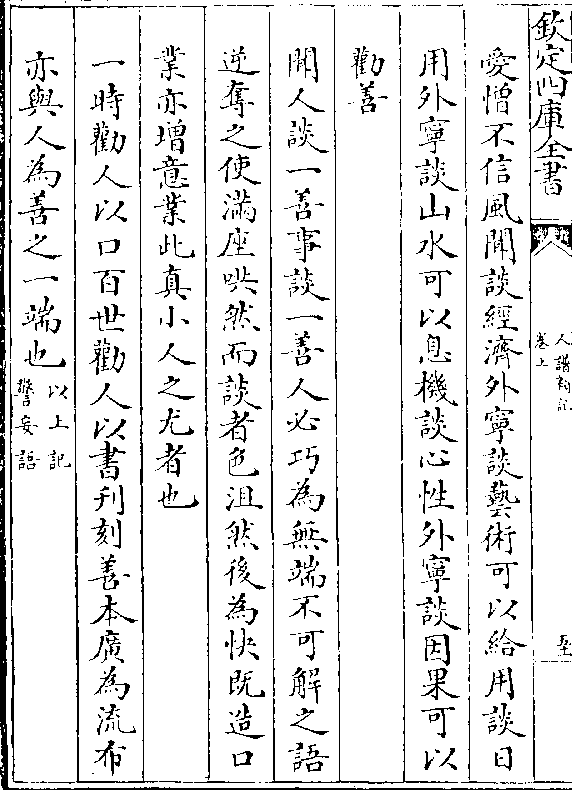 欽定四庫全書
人譜類記
卷上
愛憎不信風聞談經濟外寧談藝術可以給用談日
用外寧談山水可以息機談心性外寧談因果可以
勸善
聞人談一善事談一善人必巧為無端不可解之語
逆奪之使滿座哄然而談者色沮然後為快既造口
業亦增意業此真小人之尤者也
一時勸人以口百世勸人以書刊刻善本廣為流布
亦與人為善之一端也以上記
警妄語